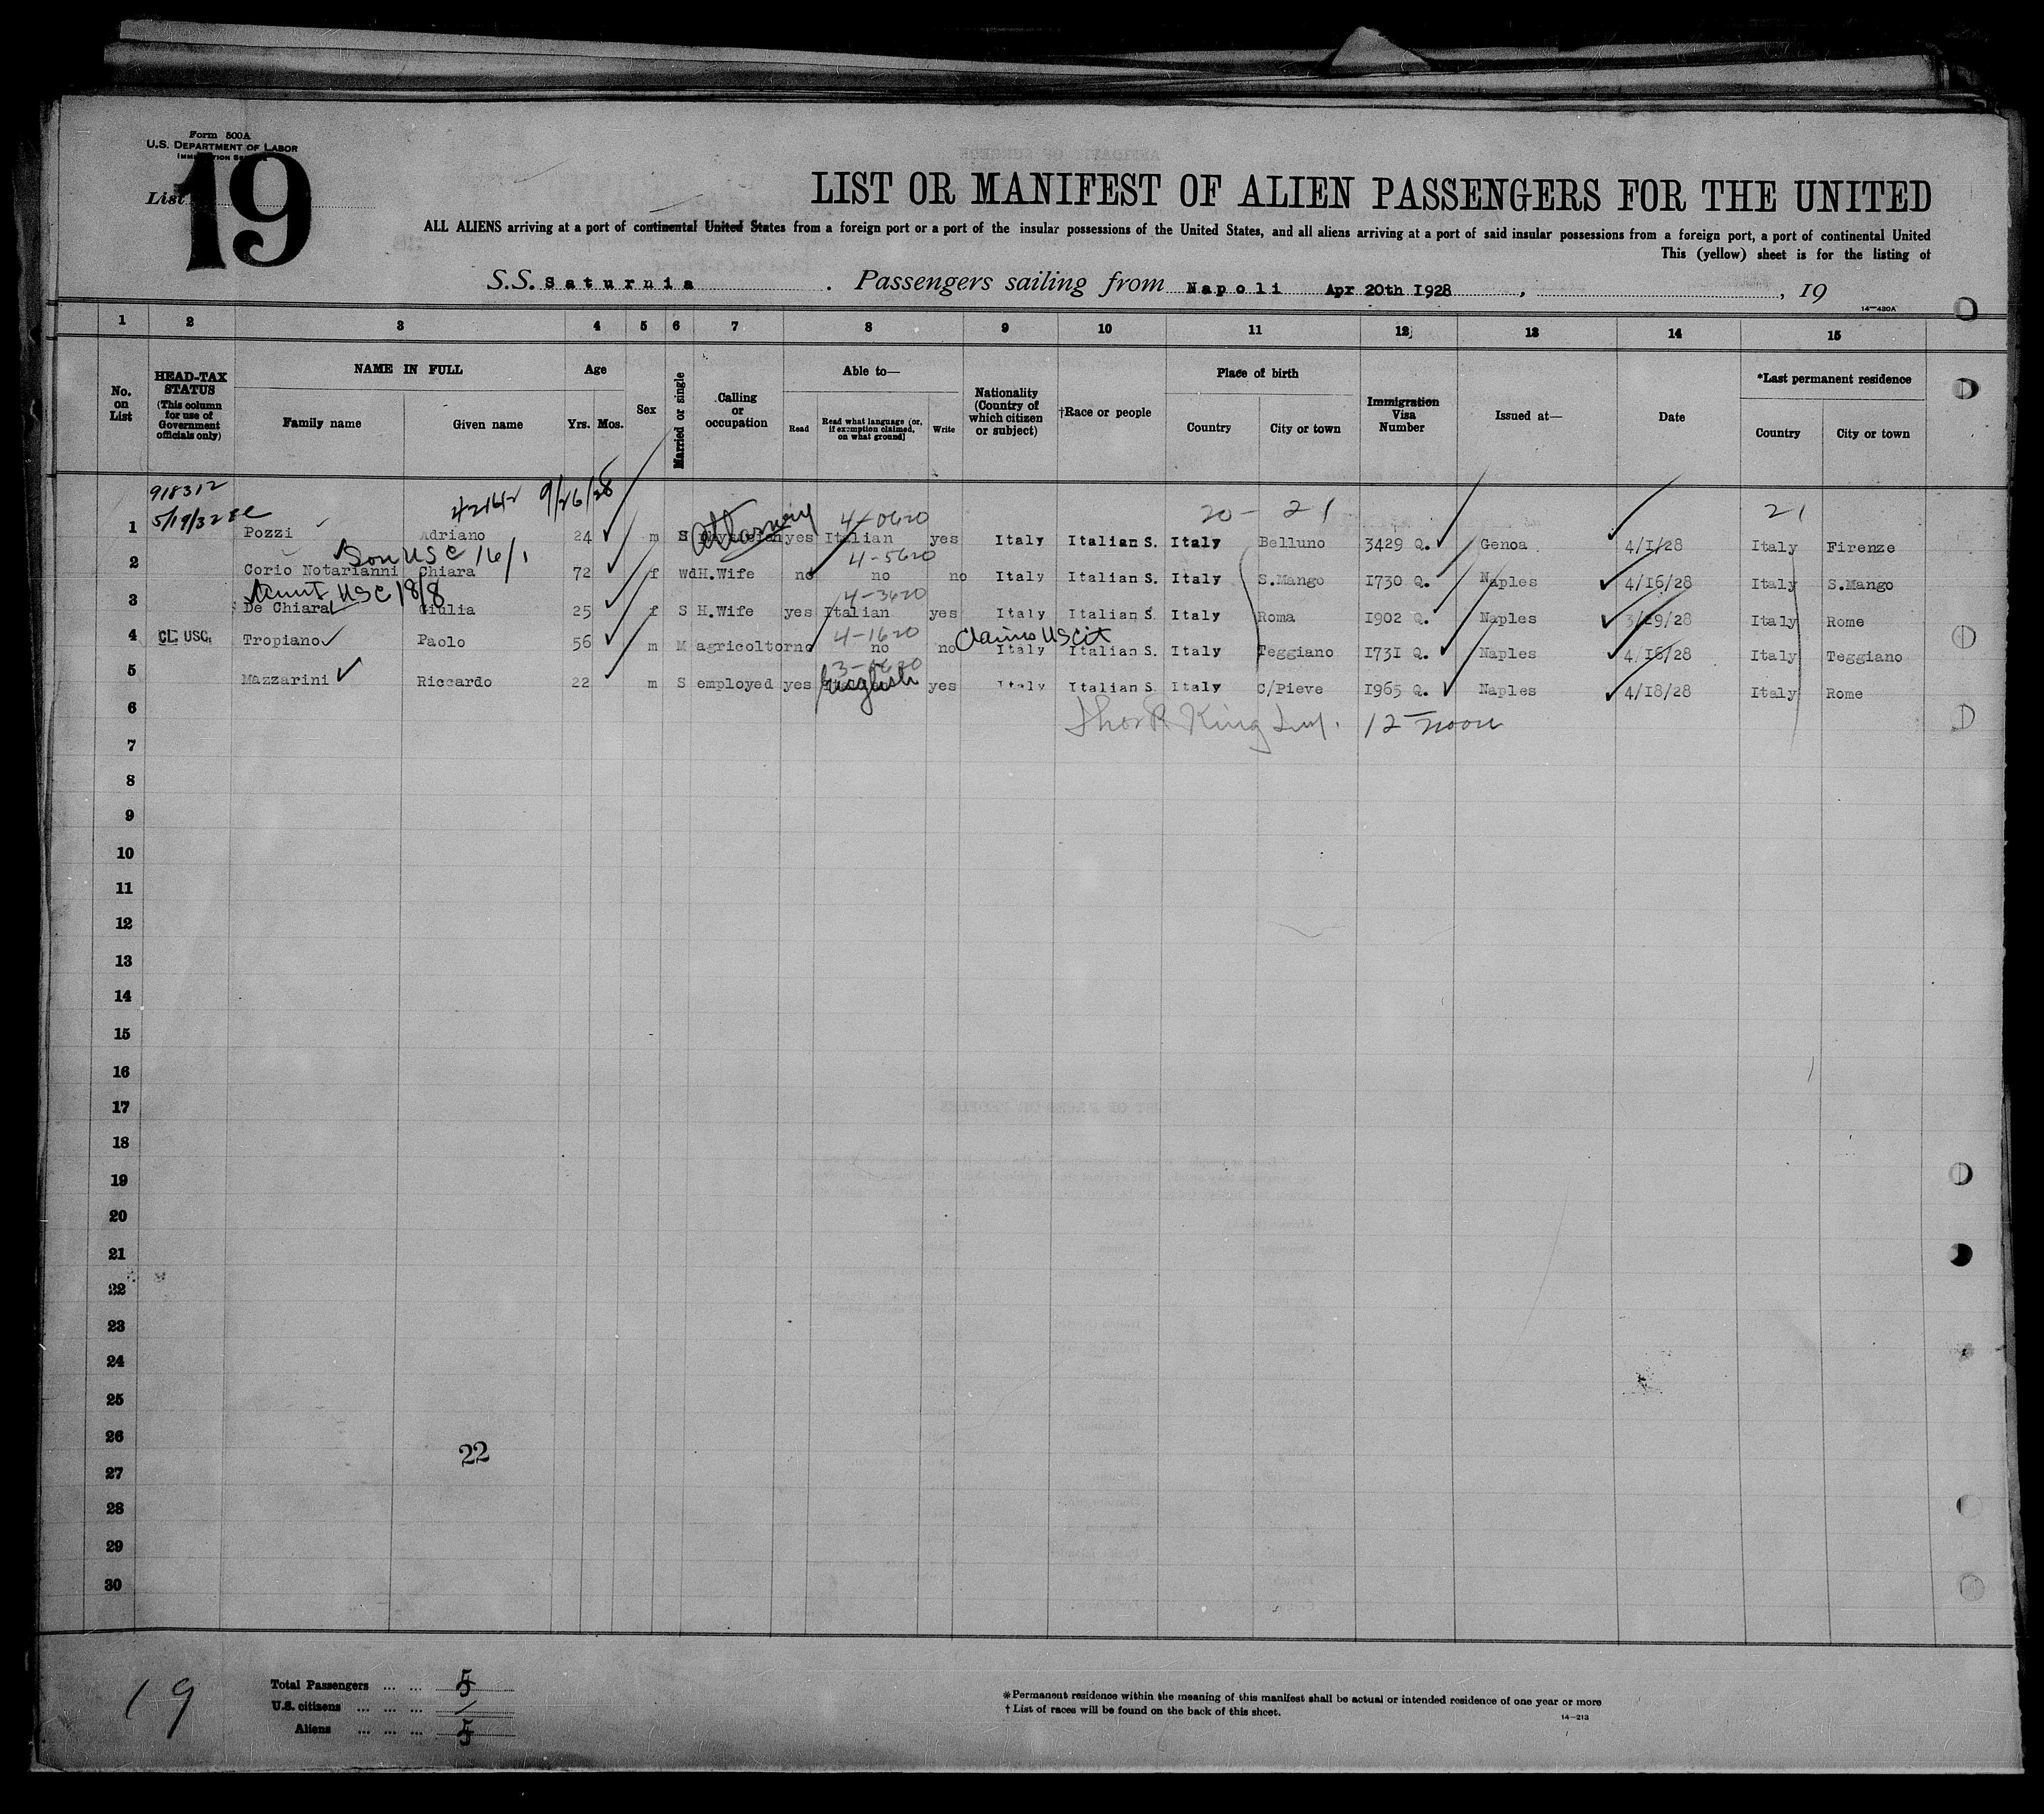 Form 500A
U.S. DEPARTMENT OF LABOR
List 19
LIST OR MANIFEST OF ALIEN PASSENGERS FOR THE UNITED
ALL ALIENS arriving at a port of continental United States from a foreign port or a port of the insular possessions of the United States, and all aliens arriving at a port of said insular possessions from a foreign port, a port of continental United
This (yellow) sheet is for the listing of
S.S. Saturnia . Passengers sailing from Napoli Apr 20th 1928 , , 19
14—430A
1 2 3 4 5 6 7 8 9 10 11 12 13 14 15
No. on List
HEAD-TAX STATUS (This column for use of Government officials only)
NAME IN FULL
Family name Given name
Age
Yrs. Mos.
Sex
Married or single
Calling or occupation
Able to—
Read Read what language (or, if exemption claimed, on what ground) Write
Nationality (Country of which citizen or subject)
†Race or people
Place of birth
Country City or town
Immigration Visa Number
Issued at—
Date
*Last permanent residence
Country City or town
918312 9/26/28
5/19/32 4-0620 20 - 21 21
1 Pozzi Adriano 24 m S Attorney yes Italian yes Italy Italian S. Italy Belluno 3429 Q. Genoa 4/1/28 Italy Firenze
Son USC 16/1 4-5620
2 Corio Notarianni Chiara 72 f wd H.Wife no no no Italy Italian S. Italy S.Mango 1730 Q. Naples 4/16/28 Italy S.Mango
Aunt USC 18/8 4-3620
3 De Chiara Giulia 25 f S H.Wife yes Italian yes Italy Italian S. Italy Roma 1902 Q. Naples 3/29/28 Italy Rome
4-1620 Claims US Cit
4 CL USC. Tropiano Paolo 56 m M agricoltor no no no Italy Italian S. Italy Teggiano 1731 Q. Naples 4/16/28 Italy Teggiano
5 Mazzarini Riccardo 22 m S employed yes English yes Italy Italian S Italy C/Pieve 1965 Q. Naples 4/18/28 Italy Rome
6 King 12 noon
7
8
9
10
11
12
13
14
15
16
17
18
19
20
21
22
23
24
25
26
22
27
28
29
30
19
Total Passengers ... ... 5
U.S. citizens ... ... ... /
Aliens ... ... ... 5
*Permanent residence within the meaning of this manifest shall be actual or intended residence of one year or more
† List of races will be found on the back of this sheet.
14—213